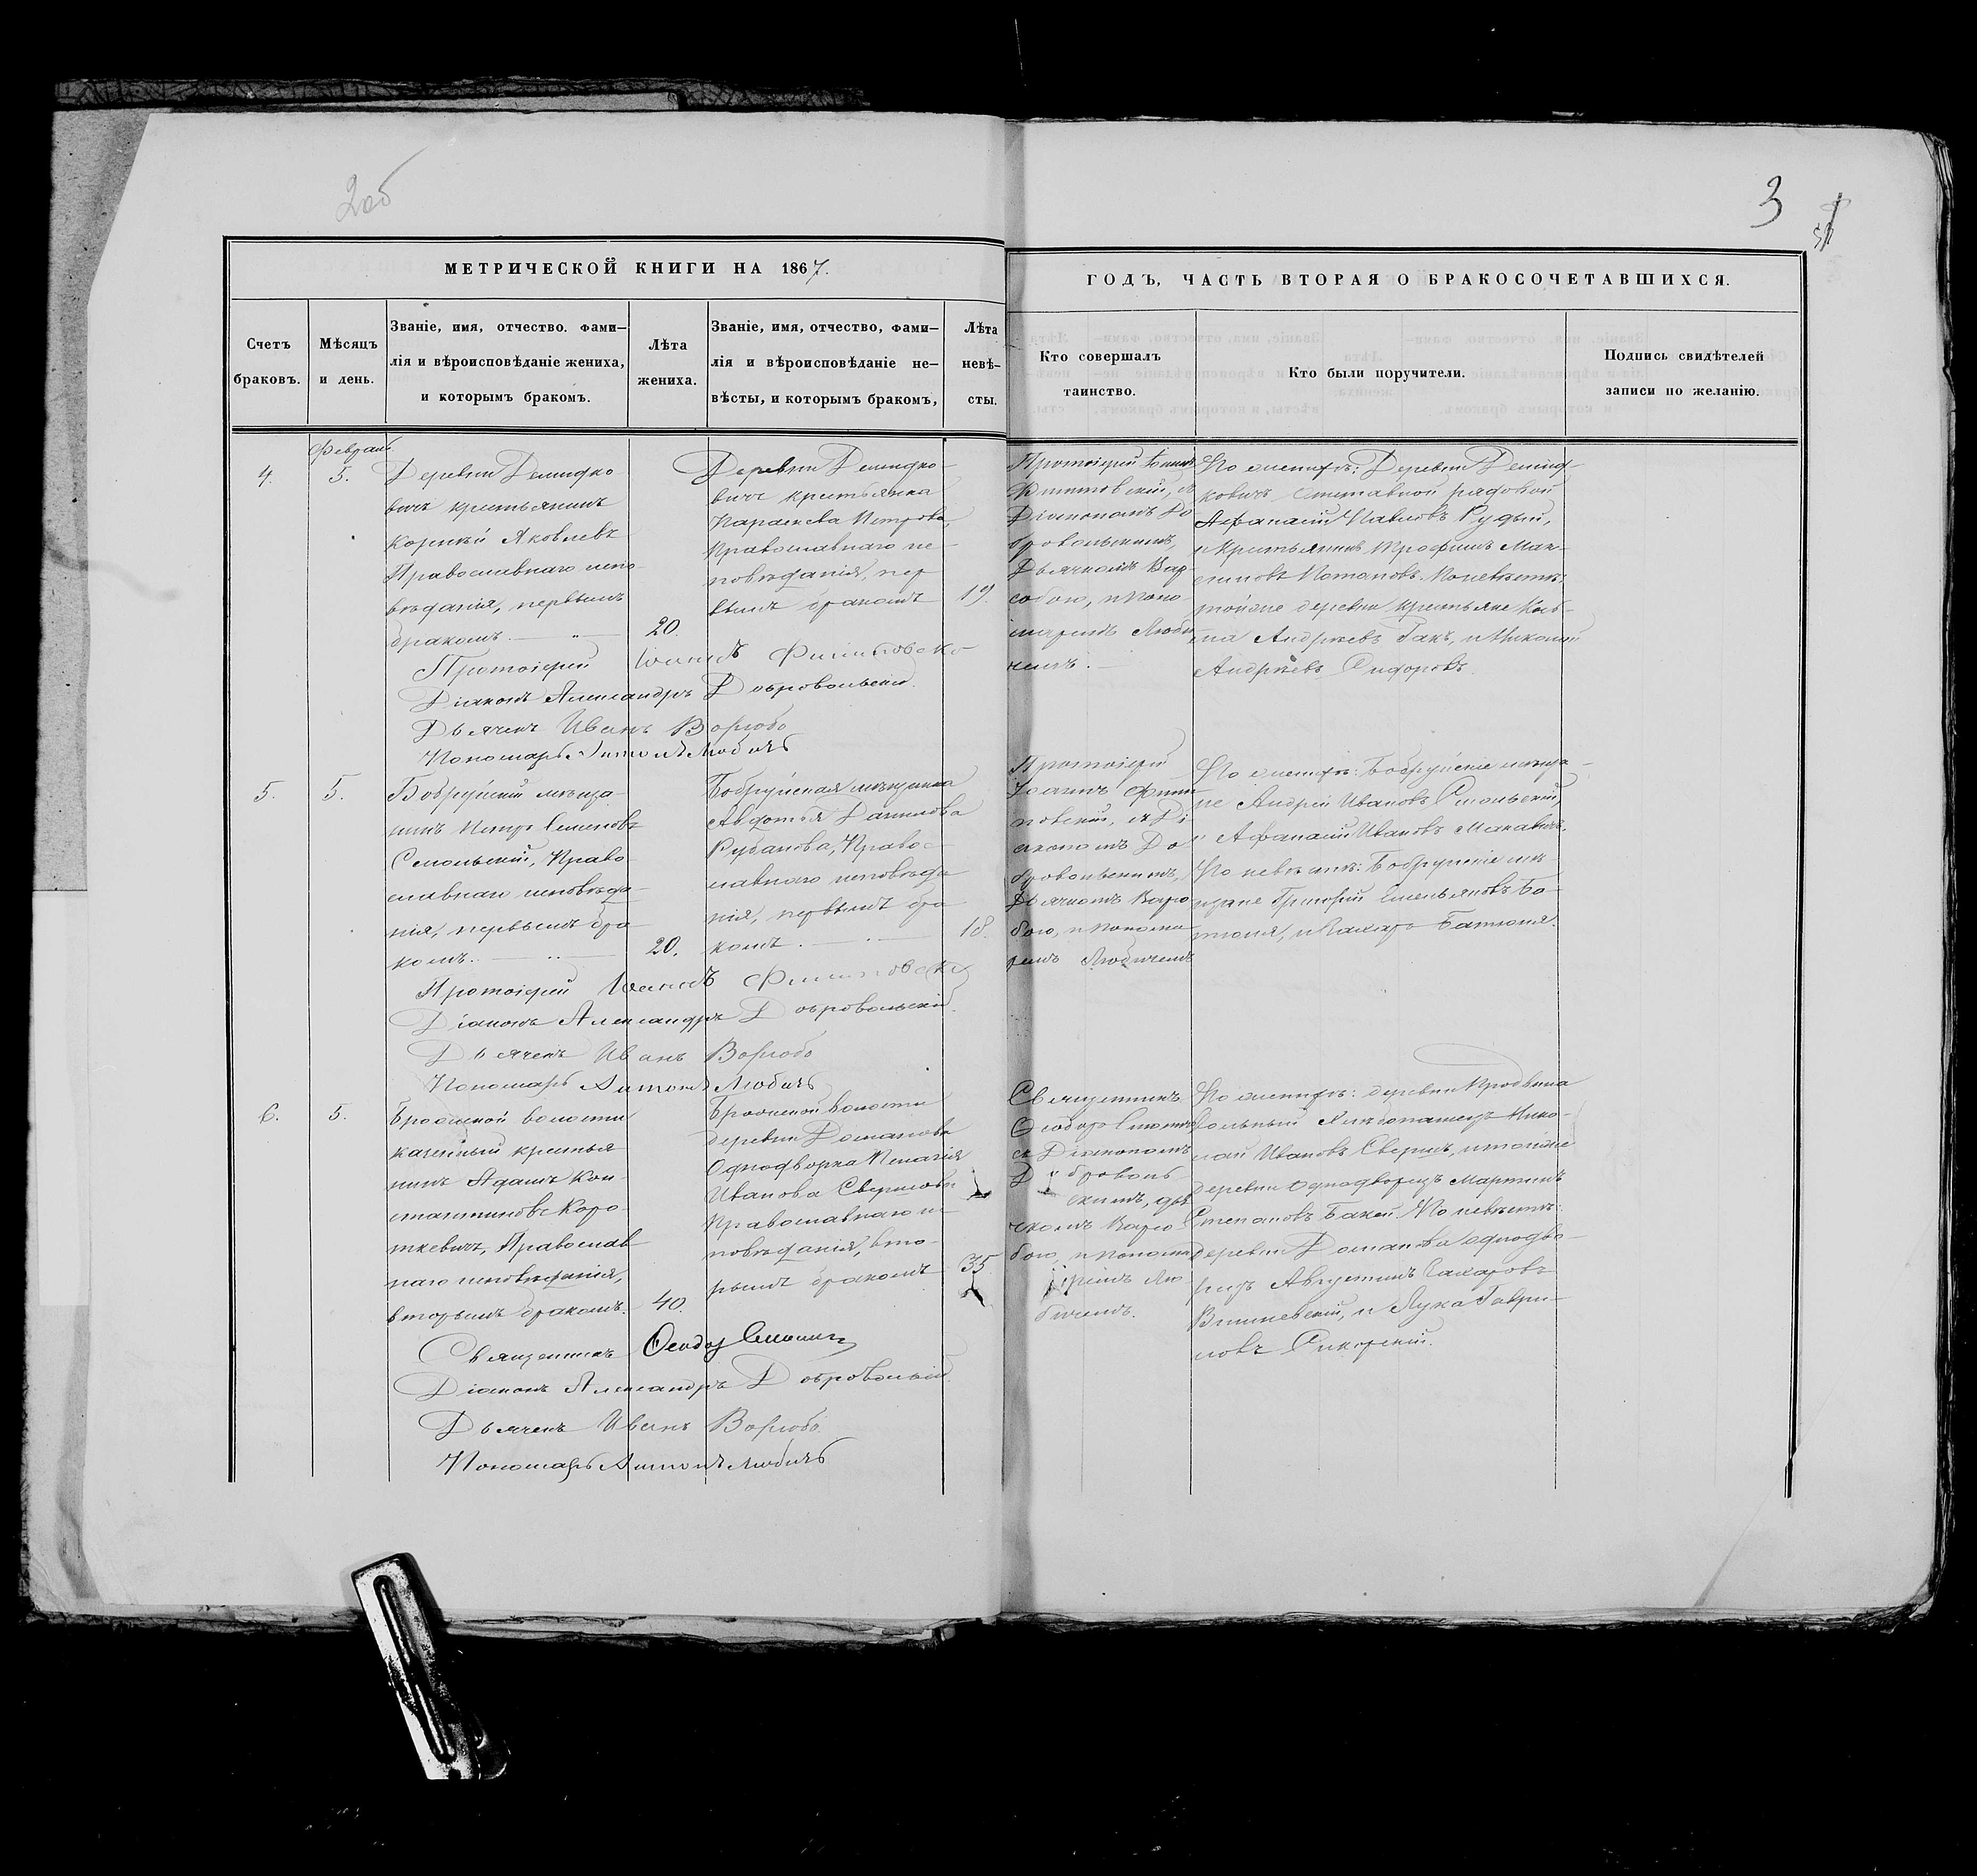 2об
3
МЕТРИЧЕСКОЙ КНИГИ НА 1867.
Счетъ
браковъ.
Мѣсяцъ
и день.
Званіе, имя, отчество. фами-
лія и вѣроисповѣданіе жениха,
и которымъ бракомъ.
Лѣта
жениха.
Званіе, имя, отчество, фами-
лія и вѣроисповѣданіе не-
вѣсты, и которымъ бракомъ,
Лѣта
невѣ-
сты.
ГОДЪ, ЧАСТЬ ВТОРАЯ О БРАКОСОЧЕТАВШИХСЯ.
Кто совершалъ
таинство.
Кто были поручители.
Подпись свидѣтелей
записи по желанію.
Февраль
4.
5.
Деревни Демидко
вичъ крестьянинъ
Корнѣй Яковлевъ
Православнаго испо
вѣданія, первымъ
бракомъ.
20.
Деревни Демидко-
вичъ крестьянка
Параскева Петрова,
Православнаго ис-
повѣданія, пер
вымъ бракомъ
19.
Протоіерей Іоаннъ
съ
Діакономъ До
бровольскимъ,
Дьячкомъ Вор-
собою, и поно
маремъ Люби
чемъ.
По женихѣ: Деревни Демид-
ковичъ отставной рядовой
Афанасій Павловъ Рудый,
и Крестьянинъ Трофимъ Мак-
симовъ Потаповъ. По невѣстѣ:
тойже деревни крестьяне Кось-
ма Андреевъ Гакъ, и Николай
Андреевъ Сидоровъ.
Протоіерей Іоаннъ
Діаконъ Александръ Добровольскій.
Дьячекъ Иванъ Воробо
Пономарь Антонъ Любичъ
5.
5.
Бобруйскій мѣща-
нинъ Петръ Семеновъ
Смольскій, Право-
славнаго исповѣда-
нія, первымъ бра-
комъ.
20.
Бобруйская мѣщанка
Авдотья Данилова
Рубанова, Право-
славнаго исповѣда
нія, первымъ бра
комъ.
18.
Протоіерей
Іоаннъ
съ Ді
акономъ До
бровольскимъ,
Дьячкомъ
бою, и понома
ремъ Любичемъ
По женихѣ: Бобруйскіе мѣща-
не Андрей Ивановъ Смольскій,
и Афанасій Ивановъ
По невѣстѣ: Бобруйскіе мѣ-
щане Григорій Емельяновъ Ба-
Захаръ
Протоіерей Іоаннъ
Діаконъ Александръ Добровольскій.
Дьячекъ Иванъ Воробо
Пономарь Антонъ Любичъ
6.
5.
Брожской волости
казенный крестья
нинъ Адамъ Кон-
стантиновъ Коро-
ткевичъ, Православ
наго исповѣданія,
вторымъ бракомъ.
40.
Брожской волости
деревни Доманова
Однодворка Пелагія
Иванова
Православнаго ис
повѣданія, вто-
рымъ бракомъ
35
Священникъ
Ѳеодоръ
съ Діакономъ
Доброволь
скимъ, дья
чкомъ
бою, и понома
ремъ Лю
бичемъ.
По женихѣ: деревни
вольный Нико-
лай Ивановъ и тойже
деревни однодворецъ Мартинъ
Степановъ По невѣстѣ:
деревни Доманова однодво-
рецъ Августинъ Захаровъ
Вишневскій, и Лука Гаври-
ловъ Сикорскій.
Священникъ Ѳеодоръ
Діаконъ Александръ Добровольскій.
Дьячекъ Иванъ Воробо.
Пономарь Антонъ Любичъ